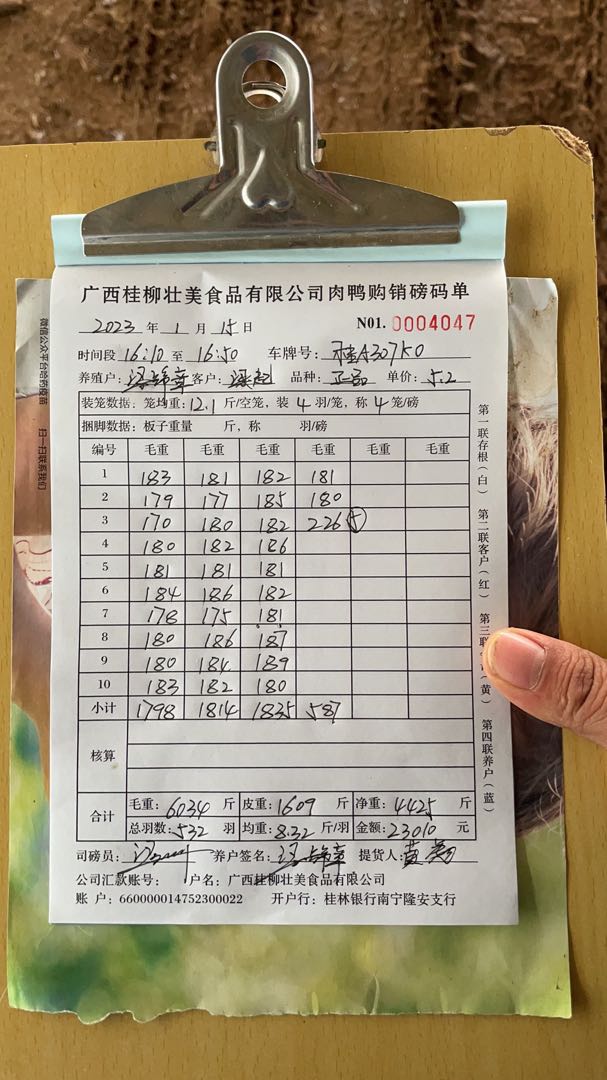 广西桂柳壮美食品有限公司肉鸭购销磅码单
2023 年 1 月 15 日 N01. 0004047
时间段 16:10 至 16:50 车牌号: 桂A307K0
养殖户: 客户: 品种: 正品 单价: 5.2
装笼数据: 笼均重: 12.1 斤/空笼, 装 4 羽/笼, 称 4 笼/磅
捆脚数据: 板子重量 斤, 称 羽/磅
编号 毛重 毛重 毛重 毛重 毛重 毛重
1 183 181 182 181
2 179 177 185 180
3 170 180 182 226 ⑤
4 180 182 186
5 181 181 181
6 184 186 182
7 178 175 181
8 180 186 187
9 180 184 189
10 183 182 180
小计 1798 1814 1835 587
核算
合计 毛重: 6034 斤 皮重: 1609 斤 净重: 4425 斤
总羽数: 532 羽 均重: 8.32 斤/羽 金额: 23010 元
司磅员: 养户签名: 提货人:
公司汇款账号: 户名: 广西桂柳壮美食品有限公司
账 户: 660000014752300022 开户行: 桂林银行南宁隆安支行
第一联存根(白) 第二联客户(红) 第三联 (黄) 第四联养户(蓝)
扫一扫联系我们